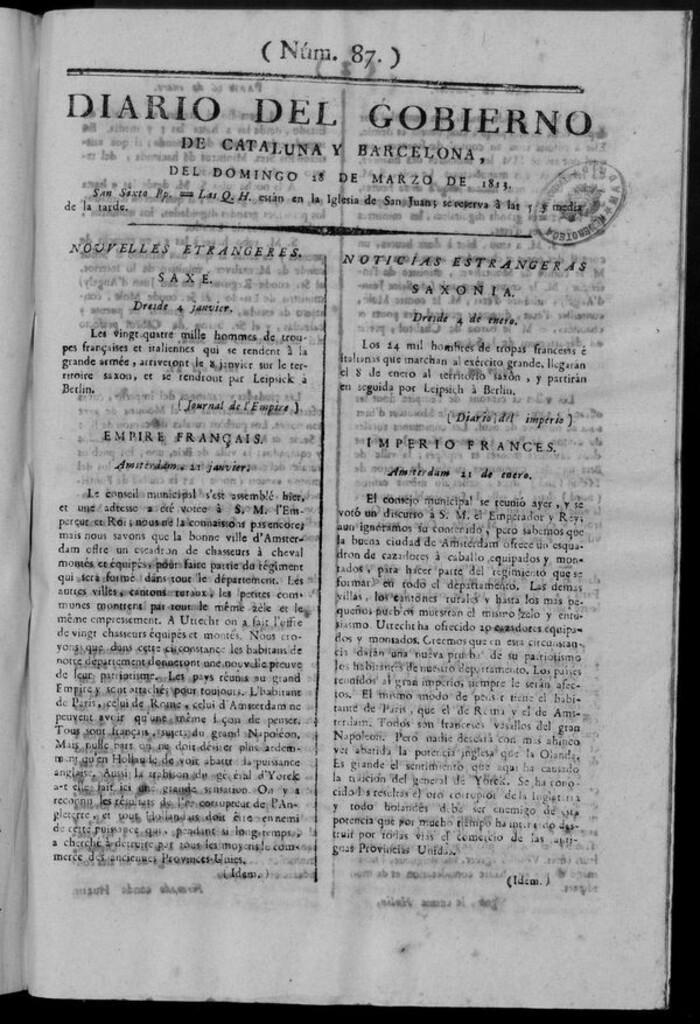 ( Núm. 87. )
DIARIO DEL GOBIERNO
DE CATALUNA Y BARCELONA,
DEL DOMINGO 28 DE MARZO DE 1813.
San Sixto Pp. = Las Q. H. están en la Iglesia de San Juan; se reserva á las 5 y media
de la tarde.
NOUVELLES ETRANGERES.
SAXE.
Dresde 4 janvier.
Les vingt-quatre mille hommes de trou-
pes françaises et italiennes qui se rendent à la
grande armée, arriveront le 8 janvier sur le ter-
rritoire saxon, et se rendront par Leipsick à
Berlin.
( Journal de l'Empire )
EMPIRE FRANÇAIS.
Amsterdam, 21 janvier.
Le conseil municipal s'est assemblé hier,
et une adresse a été votée à S. M. l'Em-
pereur et Roi; nous ne la connaissons pas encore,
mais nous savons que la bonne ville d'Amster-
dam offre un escadron de chasseurs à cheval
montés et équipés, pour faire partie du régiment
qui sera formé dans tout le département. Les
autres villes, cantons ruraux, les petites com-
munes montrent par tout le même zèle et le
même empressement. A Utrecht on a fait l'offre
de vingt chasseurs équipés et montés. Nous cro-
yons que dans cette circonstance les habitans de
notre département donneront une nouvelle preuve
de leur patriotisme. Les pays réunis au grand
Empire y sont attachés pour toujours. L'habitant
de Paris, celui de Rome, celui d'Amsterdam ne
peuvent avoir qu'une même façon de penser.
Tous sont français, sujets du grand Napoléon.
Mais nulle part on ne doit désirer plus ardem-
ment qu'en Hollande de voir abattre la puissance
anglaise. Aussi la trahison du général d'Yorck
a-t-elle fait ici une grande sensation. On y a
reconnu les résultats de l'or corrupteur de l'An-
gleterre, et tout Hollandais doit être ennemi
de cette puissance qui, pendant si long-temps,
a cherché à détruire par tous les moyens le com-
merce des anciennes Provinces-Unies.
(Idem.)
NOTICIAS ESTRANGERAS
SAXONIA.
Dresde 4 de enero.
Los 24 mil hombres de tropas francesas é
italianas que marchan al exército grande, llegarán
el 8 de enero al territorio saxón, y partirán
en seguida por Leipsich à Berlin.
( Diario del imperio )
IMPERIO FRANCES.
Amsterdam 21 de enero.
El consejo municipal se reunió ayer, y se
votó un discurso à S. M. el Emperador y Rey;
aun ignoramos su contenido, pero sabemos que
la buena ciudad de Amsterdam ofrece un esqua-
dron de cazadores à caballo equipados y mon-
tados, para hacer parte del regimiento que se
formará en todo el departamento. Las demas
villas, los cantones rurales y hasta los mas pe-
queños pueblos muestran el mismo zelo y entu-
siasmo. Utrecht ha ofrecido 20 cazadores equipa-
dos y montados. Creemos que en esta circunstan-
cia darán una nueva prueba de su patriotismo
los habitantes de nuestro departamento. Los paises
reunidos al gran imperio, siempre le serán afec-
tos. El mismo modo de pensar tiene el habi-
tante de Paris, que el de Roma y el de Ams-
terdam. Todos son franceses vasallos del gran
Napoleon. Pero nadie deseará con mas ahinco
ver abatida la potencia inglesa que la Olanda.
Es grande el sentimiento que aqui ha causado
la traicion del general de Yorck. Se ha cono-
cido las resultas el oro corruptor de la Inglaterra
y todo holandés debe ser enemigo de esta
potencia que por mucho tiempo ha intentado des-
truir por todas vias el comercio de las anti-
guas Provincias Unidas.
(Idem.)